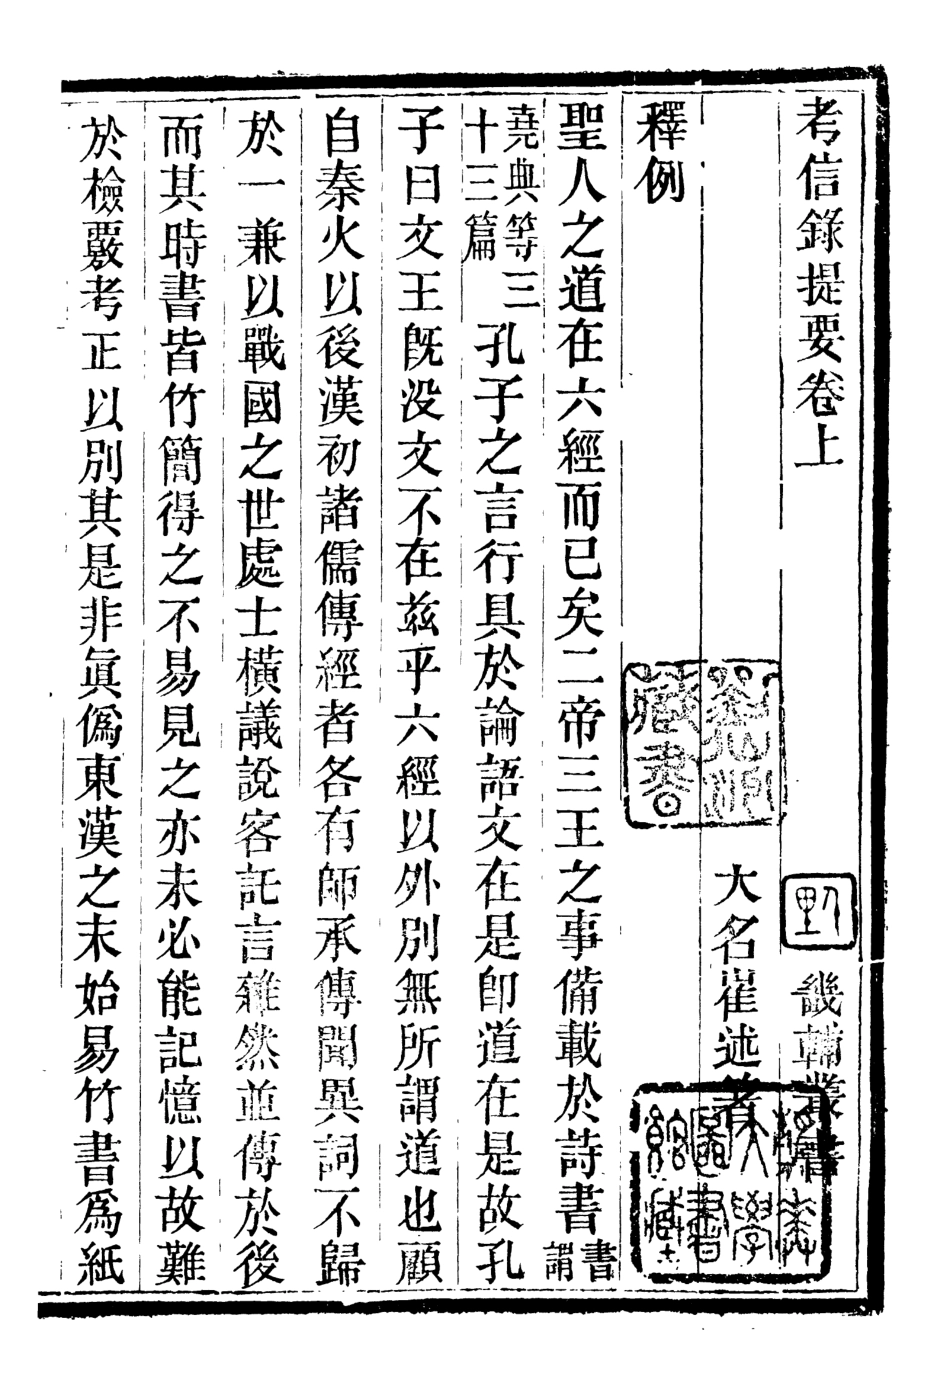 考信錄提要卷上 畿輔叢書
大名崔述著
釋例
聖人之道在六經而已矣二帝三王之事備載於詩書書謂
堯典等三十三篇孔子之言行具於論語文在是即道在是故孔
子曰文王旣沒文不在茲乎六經以外別無所謂道也顧
自秦火以後漢初諸儒傳經者各有師承傳聞異詞不歸
於一兼以戰國之世處士橫議說客託言雜然並傳於後
而其時書皆竹簡得之不易見之亦未必能記憶以故難
於檢覈考正以別其是非眞僞東漢之末始易竹書爲紙